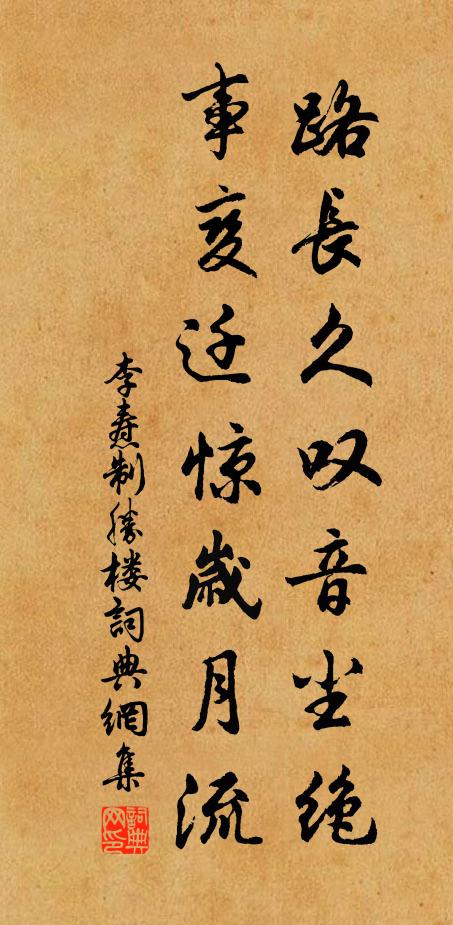 路長久叹音尘绝
事变迁惊歲月流
李焘制勝楼詞典網集
詞典网印